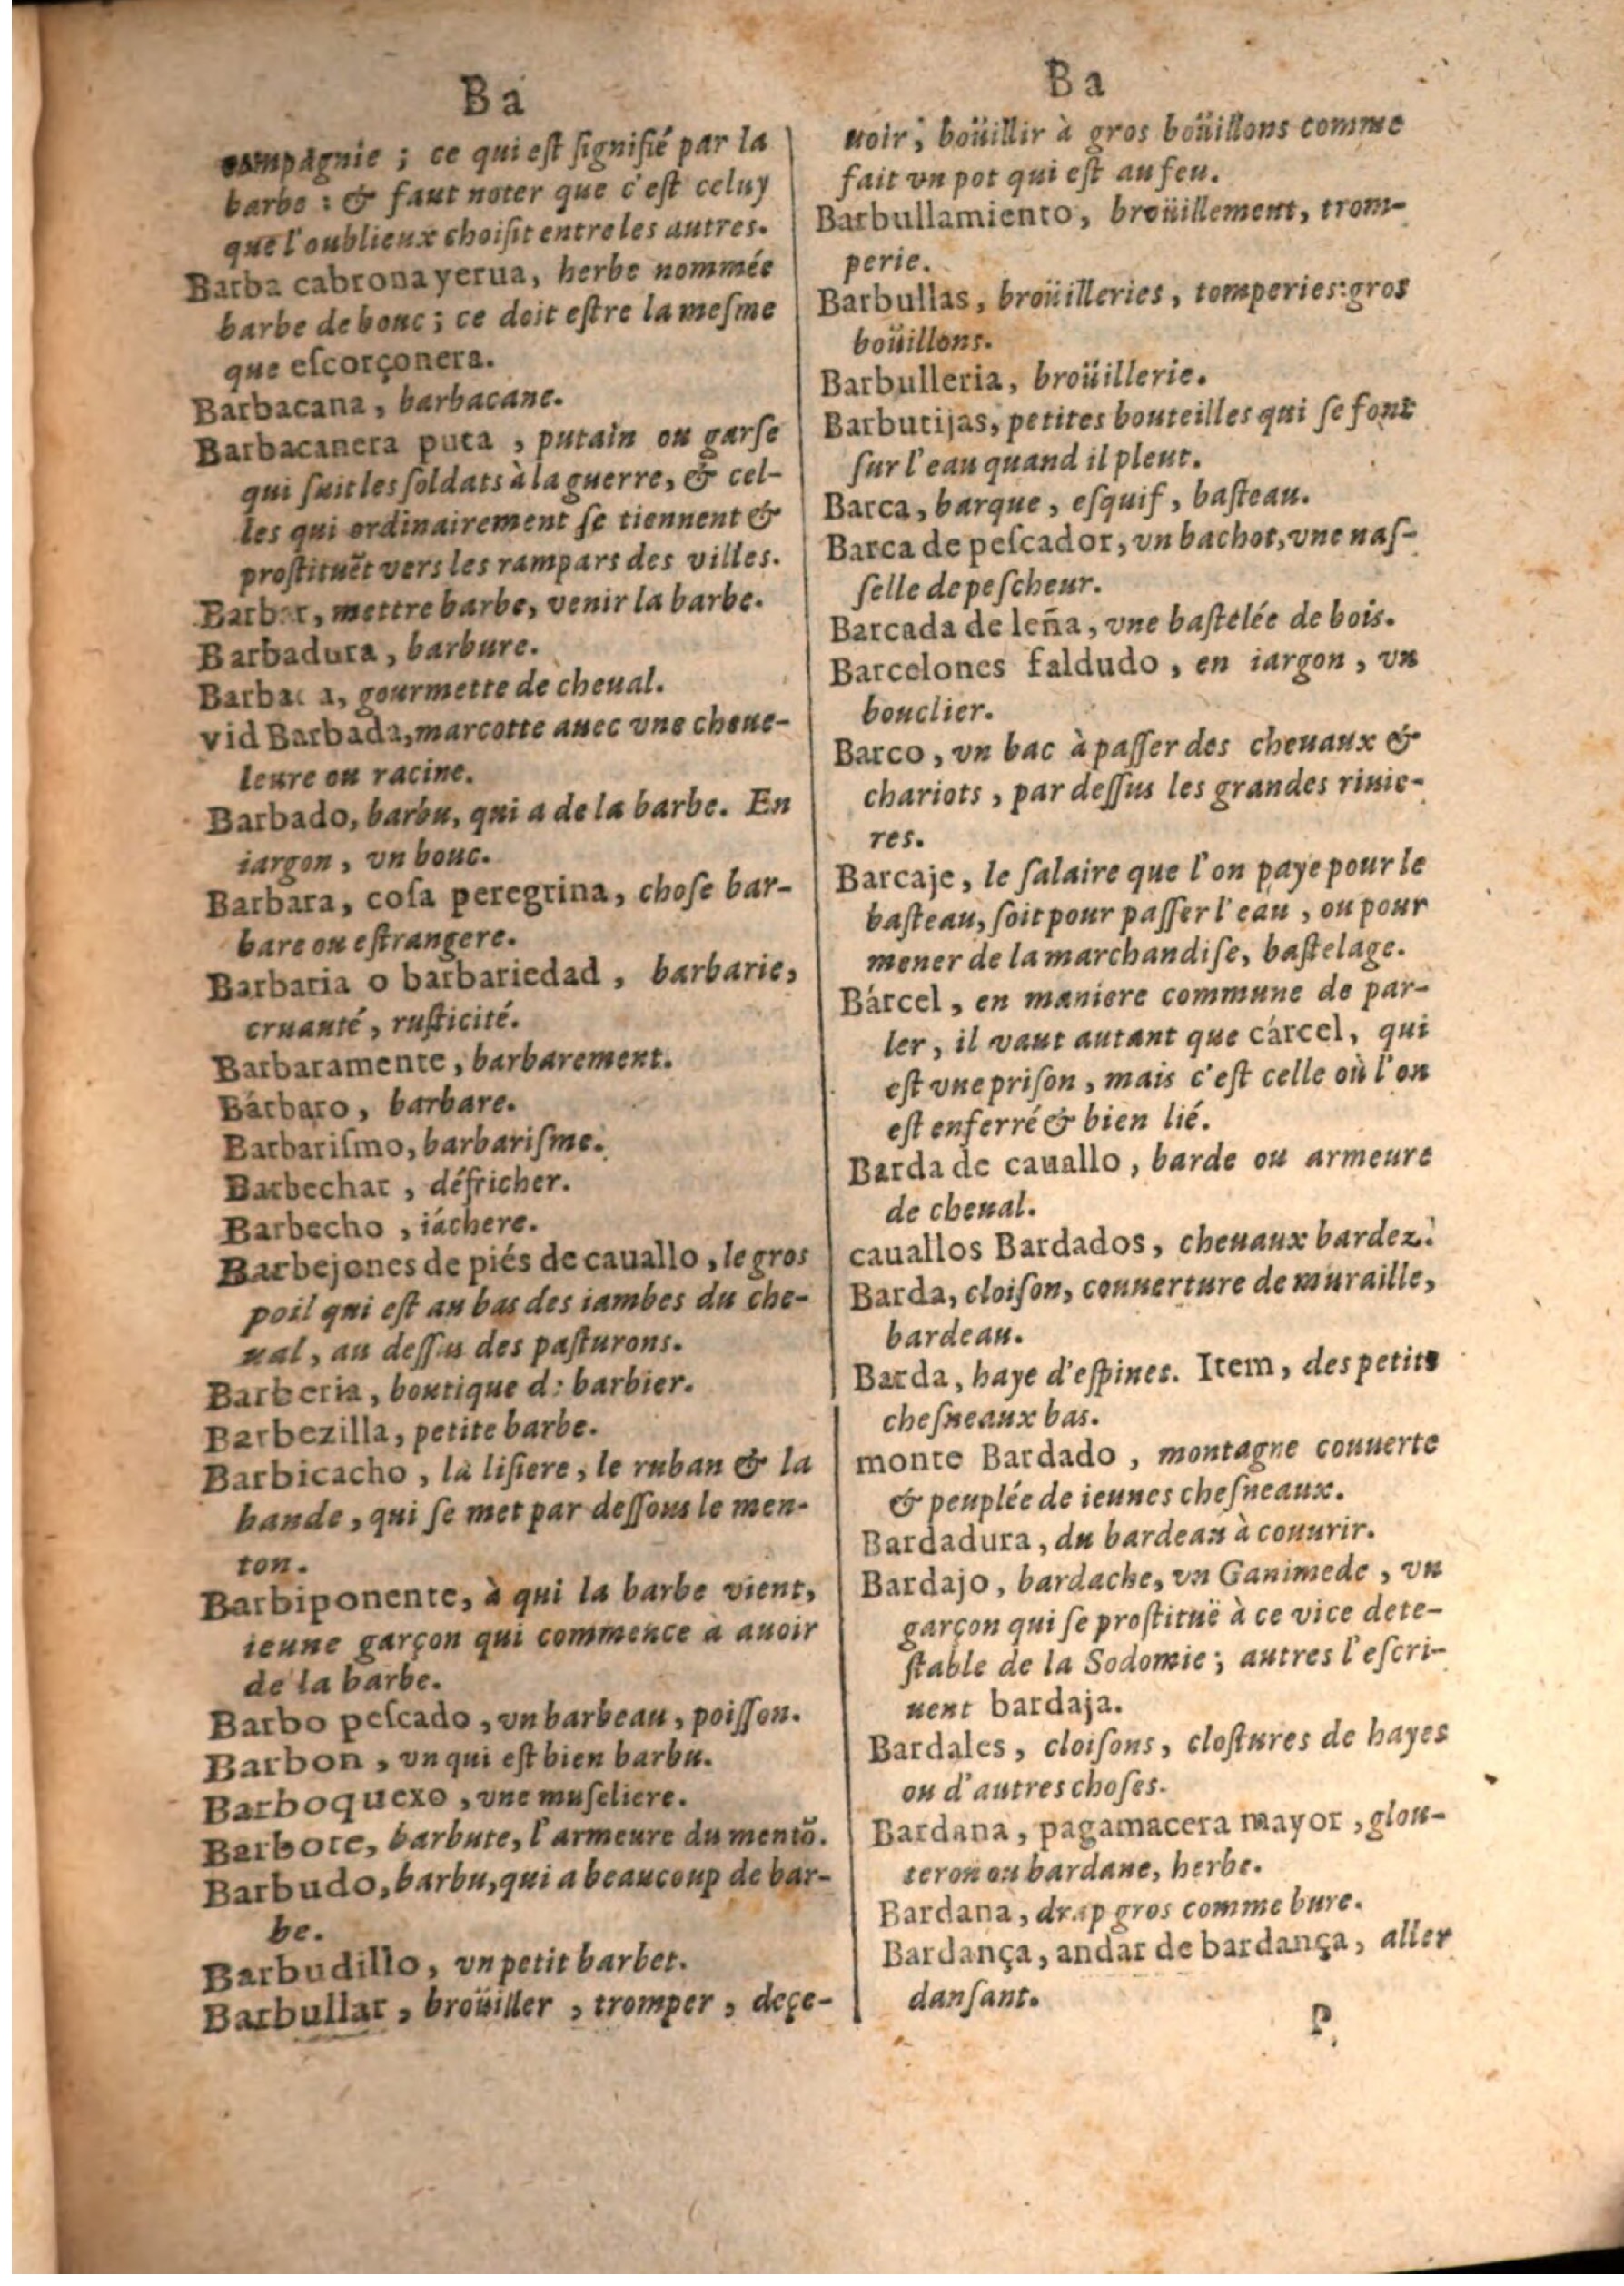 Ba
compagnie ; ce qui eſt ſignifié par la
barbe : & faut noter que c'eſt celuy
que l'oublieux choiſit entre les autres.
Barba cabrona yerua, herbe nommée
barbe de bouc ; ce doit eſtre la meſme
que eſcorçonera.
Barbacana, barbacane.
Barbacanera puta, putain ou garſe
qui ſuit les ſoldats à la guerre, & cel-
les qui ordinairement ſe tiennent &
proſtituẽt vers les rampars des villes.
Barbar, mettre barbe, venir la barbe.
Barbadura, barbure.
gourmette de cheual.
vid Barbada, marcotte auec vne cheue-
leure ou racine.
Barbado, barbu, qui a de la barbe. En
iargon, vn bouc.
Barbara, coſa peregrina, choſe bar-
bare ou eſtrangere.
Barbaria o barbariedad, barbarie,
cruauté, ruſticité.
Barbaramente, barbarement.
Bárbaro, barbare.
Barbariſmo, barbariſme.
Barbechar, défricher.
Barbecho, iáchere.
Barbejones de piés de cauallo, le gros
poil qui eſt au bas des iambes du che-
ual, au deſſus des paſturons.
Barberia, boutique de barbier.
Barbezilla, petite barbe.
Barbicacho, la liſiere, le ruban & la
bande, qui ſe met par deſſous le men-
ton.
Barbiponente, à qui la barbe vient,
ieune garçon qui commence à auoir
de la barbe.
Barbo peſcado, vn barbeau, poiſſon.
Barbon, vn qui eſt bien barbu.
Barboquexo, vne muſeliere.
Barbote, barbute, l'armeure du mentõ.
Barbudo, barbu, qui a beaucoup de bar-
be.
Barbudillo, vn petit barbet.
Barbullar, broüiller, tromper, deçe-
Ba
uoir ; boüillir à gros boüillons comme
fait vn pot qui eſt au feu.
Barbullamiento, broüillement, trom-
perie.
Barbullas, broüilleries, tomperies: gros
boüillons.
Barbulleria, broüillerie.
Barbutijas, petites bouteilles qui ſe font
ſur l'eau quand il pleut.
Barca, barque, eſquif, baſteau.
Barca de peſcador, vn bachot, vne naſ-
ſelle de peſcheur.
Barcada de leña, vne baſtelée de bois.
Barcelones faldudo, en iargon, vn
bouclier.
Barco, vn bac à paſſer des cheuaux &
chariots, par deſſus les grandes riuie-
res.
Barcaje, le ſalaire que l'on paye pour le
baſteau, ſoit pour paſſer l'eau, ou pour
mener de la marchandiſe, baſtelage.
Bárcel, en maniere commune de par-
ler, il vaut autant que cárcel, qui
eſt vne priſon, mais c'eſt celle où l'on
eſt enferré & bien lié.
Barda de cauallo, barde ou armeure
de cheual.
cauallos Bardados, cheuaux bardez.
Barda, cloiſon, couuerture de muraille,
bardeau.
Barda, haye d'eſpines. Item, des petits
cheſneaux bas.
monte Bardado, montagne couuerte
& peuplée de ieunes cheſneaux.
Bardadura, du bardeau à couurir.
Bardajo, bardache, vn Ganimede, vn
garçon qui ſe proſtituë à ce vice dete-
ſtable de la Sodomie ; autres l'eſcri-
uent bardaja.
Bardales, cloiſons, cloſtures de hayes
ou d'autres choſes.
Bardana, pagamacera mayor, glou-
teron ou bardane, herbe.
Bardana, drap gros comme bure.
Bardança, andar de bardança, aller
danſant.
P